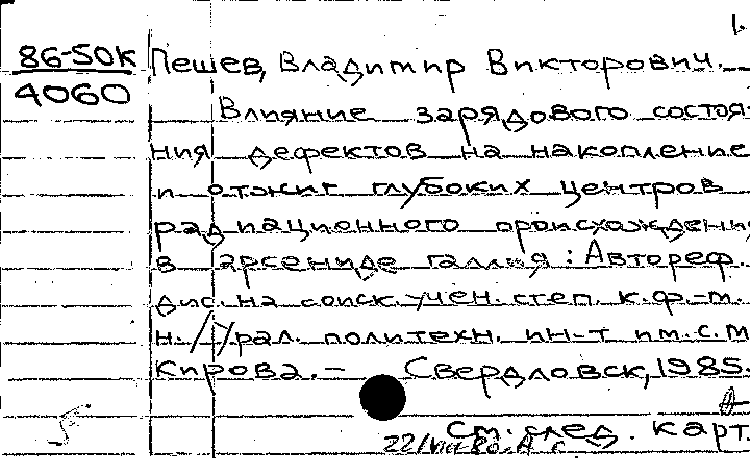 1.
86-50к Пешев, Владимир Викторович.
4060
Влияние зарядового состоя-
ния дефектов на накопление
и отжиг глубоких центров
радиационного происхождения
в арсениде галлия : Автореф.
дис. на соиск. учен. степ. к.ф.-м.
н. / Урал. политехн. ин-т им. С.М
Кирова. – Свердловск, 1985.
См. след. карт.